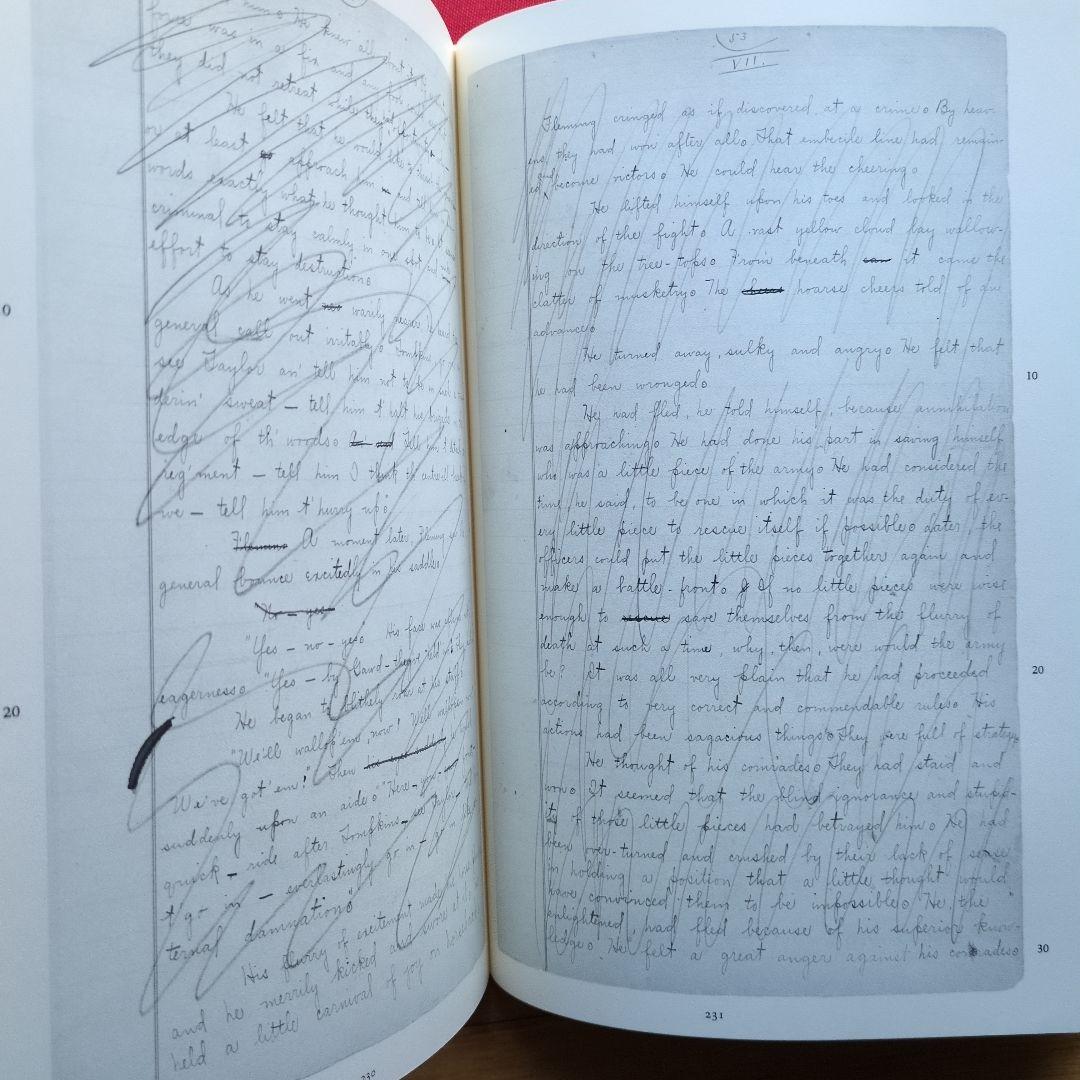 force was in a fix and
they did not retreat while they
He felt that he would
or at least approach him and tell
words exactly what he thought him to be. It
criminal to stay calmly in one spot and
effort to stay destruction.
As he went warily nearer, he
general call out irritably. Tompkins, go
see Taylor an' tell him not t' be in such
derin' sweat — tell him t' halt his brigade
edge of th' woods. Tell him t' detach
reg'ment — tell him I think th'
we — tell him t' hurry up.
Fleming A moment later, Fleming
general bounce excitedly in his saddle.
"No – yes
"Yes – no – yes. His face was
eagerness. "Yes – by
He began to blithely roar at his staff.
"We'll wallop 'em, now! We'll wallop
We've got 'em!" Then
suddenly upon an aide. "Here – you –
quick – ride after Tompkins – see Taylor –
t' go in – everlastingly go in –
ternal damnation."
His flurry of excitement made
and he merrily kicked and swore at
held a little carnival of joy on horseback
0
20
230
53
VII.
Fleming cringed as if discovered at a crime. By heav-
ens, they had won after all. That embecile line had remain-
ed and become victors. He could hear the cheering.
He lifted himself upon his toes and looked in the
direction of the fight. A vast yellow cloud lay wallow-
ing on the tree-tops. From beneath it came the
clatter of musketry. The hoarse cheers told of an
advance.
He turned away, sulky and angry. He felt that
he had been wronged.
He had fled, he told himself, because annihilation
was approaching. He had done his part in saving himself
who was a little piece of the army. He had considered the
time, he said, to be one in which it was the duty of ev-
ery little piece to rescue itself if possible. Later, the
officers could put the little pieces together again and
make a battle-front. If no little pieces were wise
enough to rescue save themselves from the flurry of
death at such a time, why, then, were would the army
be? It was all very plain that he had proceeded
according to very correct and commendable rules. His
actions had been sagacious things. They were full of strategy.
He thought of his comrades. They had staid and
won. It seemed that the blind ignorance and stupid-
ity of those little pieces had betrayed him. He had
been over-turned and crushed by their lack of sense
in holding a position that a little thought would
have convinced them to be impossible. He, the
enlightened, had fled because of his superior know-
ledge. He felt a great anger against his comrades.
10
20
30
231